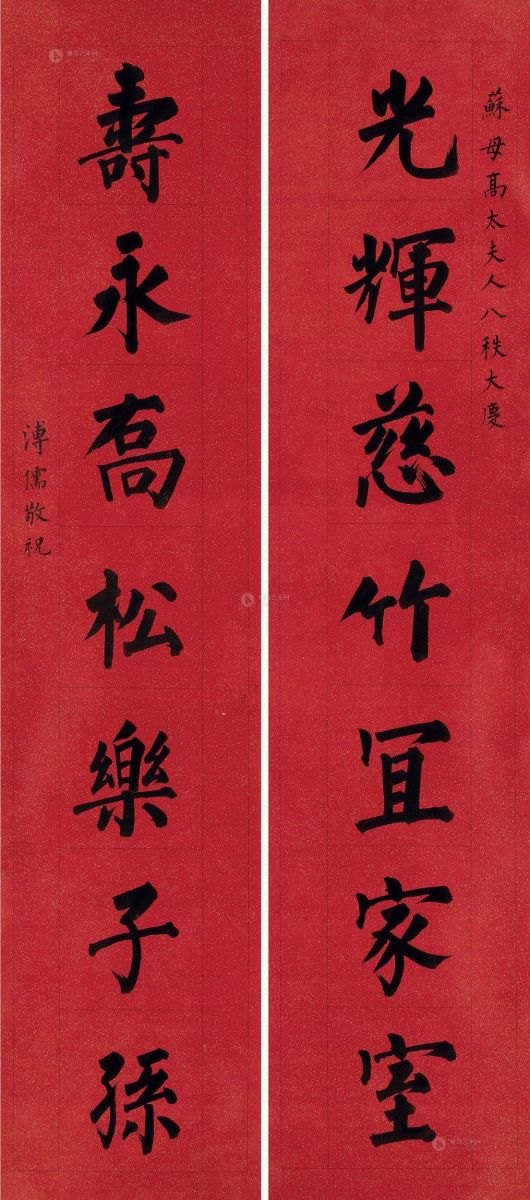 蘇母高太夫人八秩大慶
光輝慈竹宜家室
壽永喬松樂子孫
溥儒敬祝